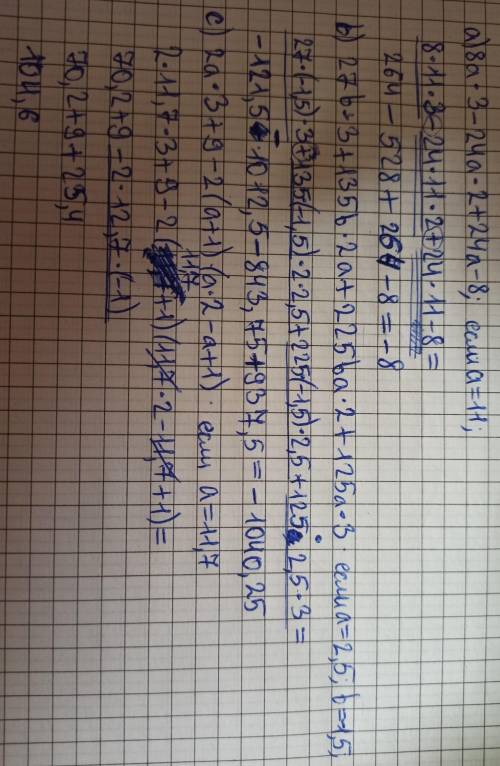 a) 8a·3-24a·2+24a-8; если a=11;
8·11·3-24·11·2+24·11-8=
264-528+264-8=-8
b) 27b·3+135b·2a+225ba·2+125a·3· если a=2,5; b=-1,5;
27·(-1,5)·3+135(-1,5)·2·2,5+225(-1,5)·2,5+125·2,5·3=
-121,5-1012,5-843,75+937,5=-1040,25
c) 2a·3+9-2(a+1)(a·2-a+1)· если a=11,7
2·11,7·3+9-2(11,7+1)(11,7·2-11,7+1)=
70,2+9-2·12,7·(-1)
70,2+9+25,4
104,6